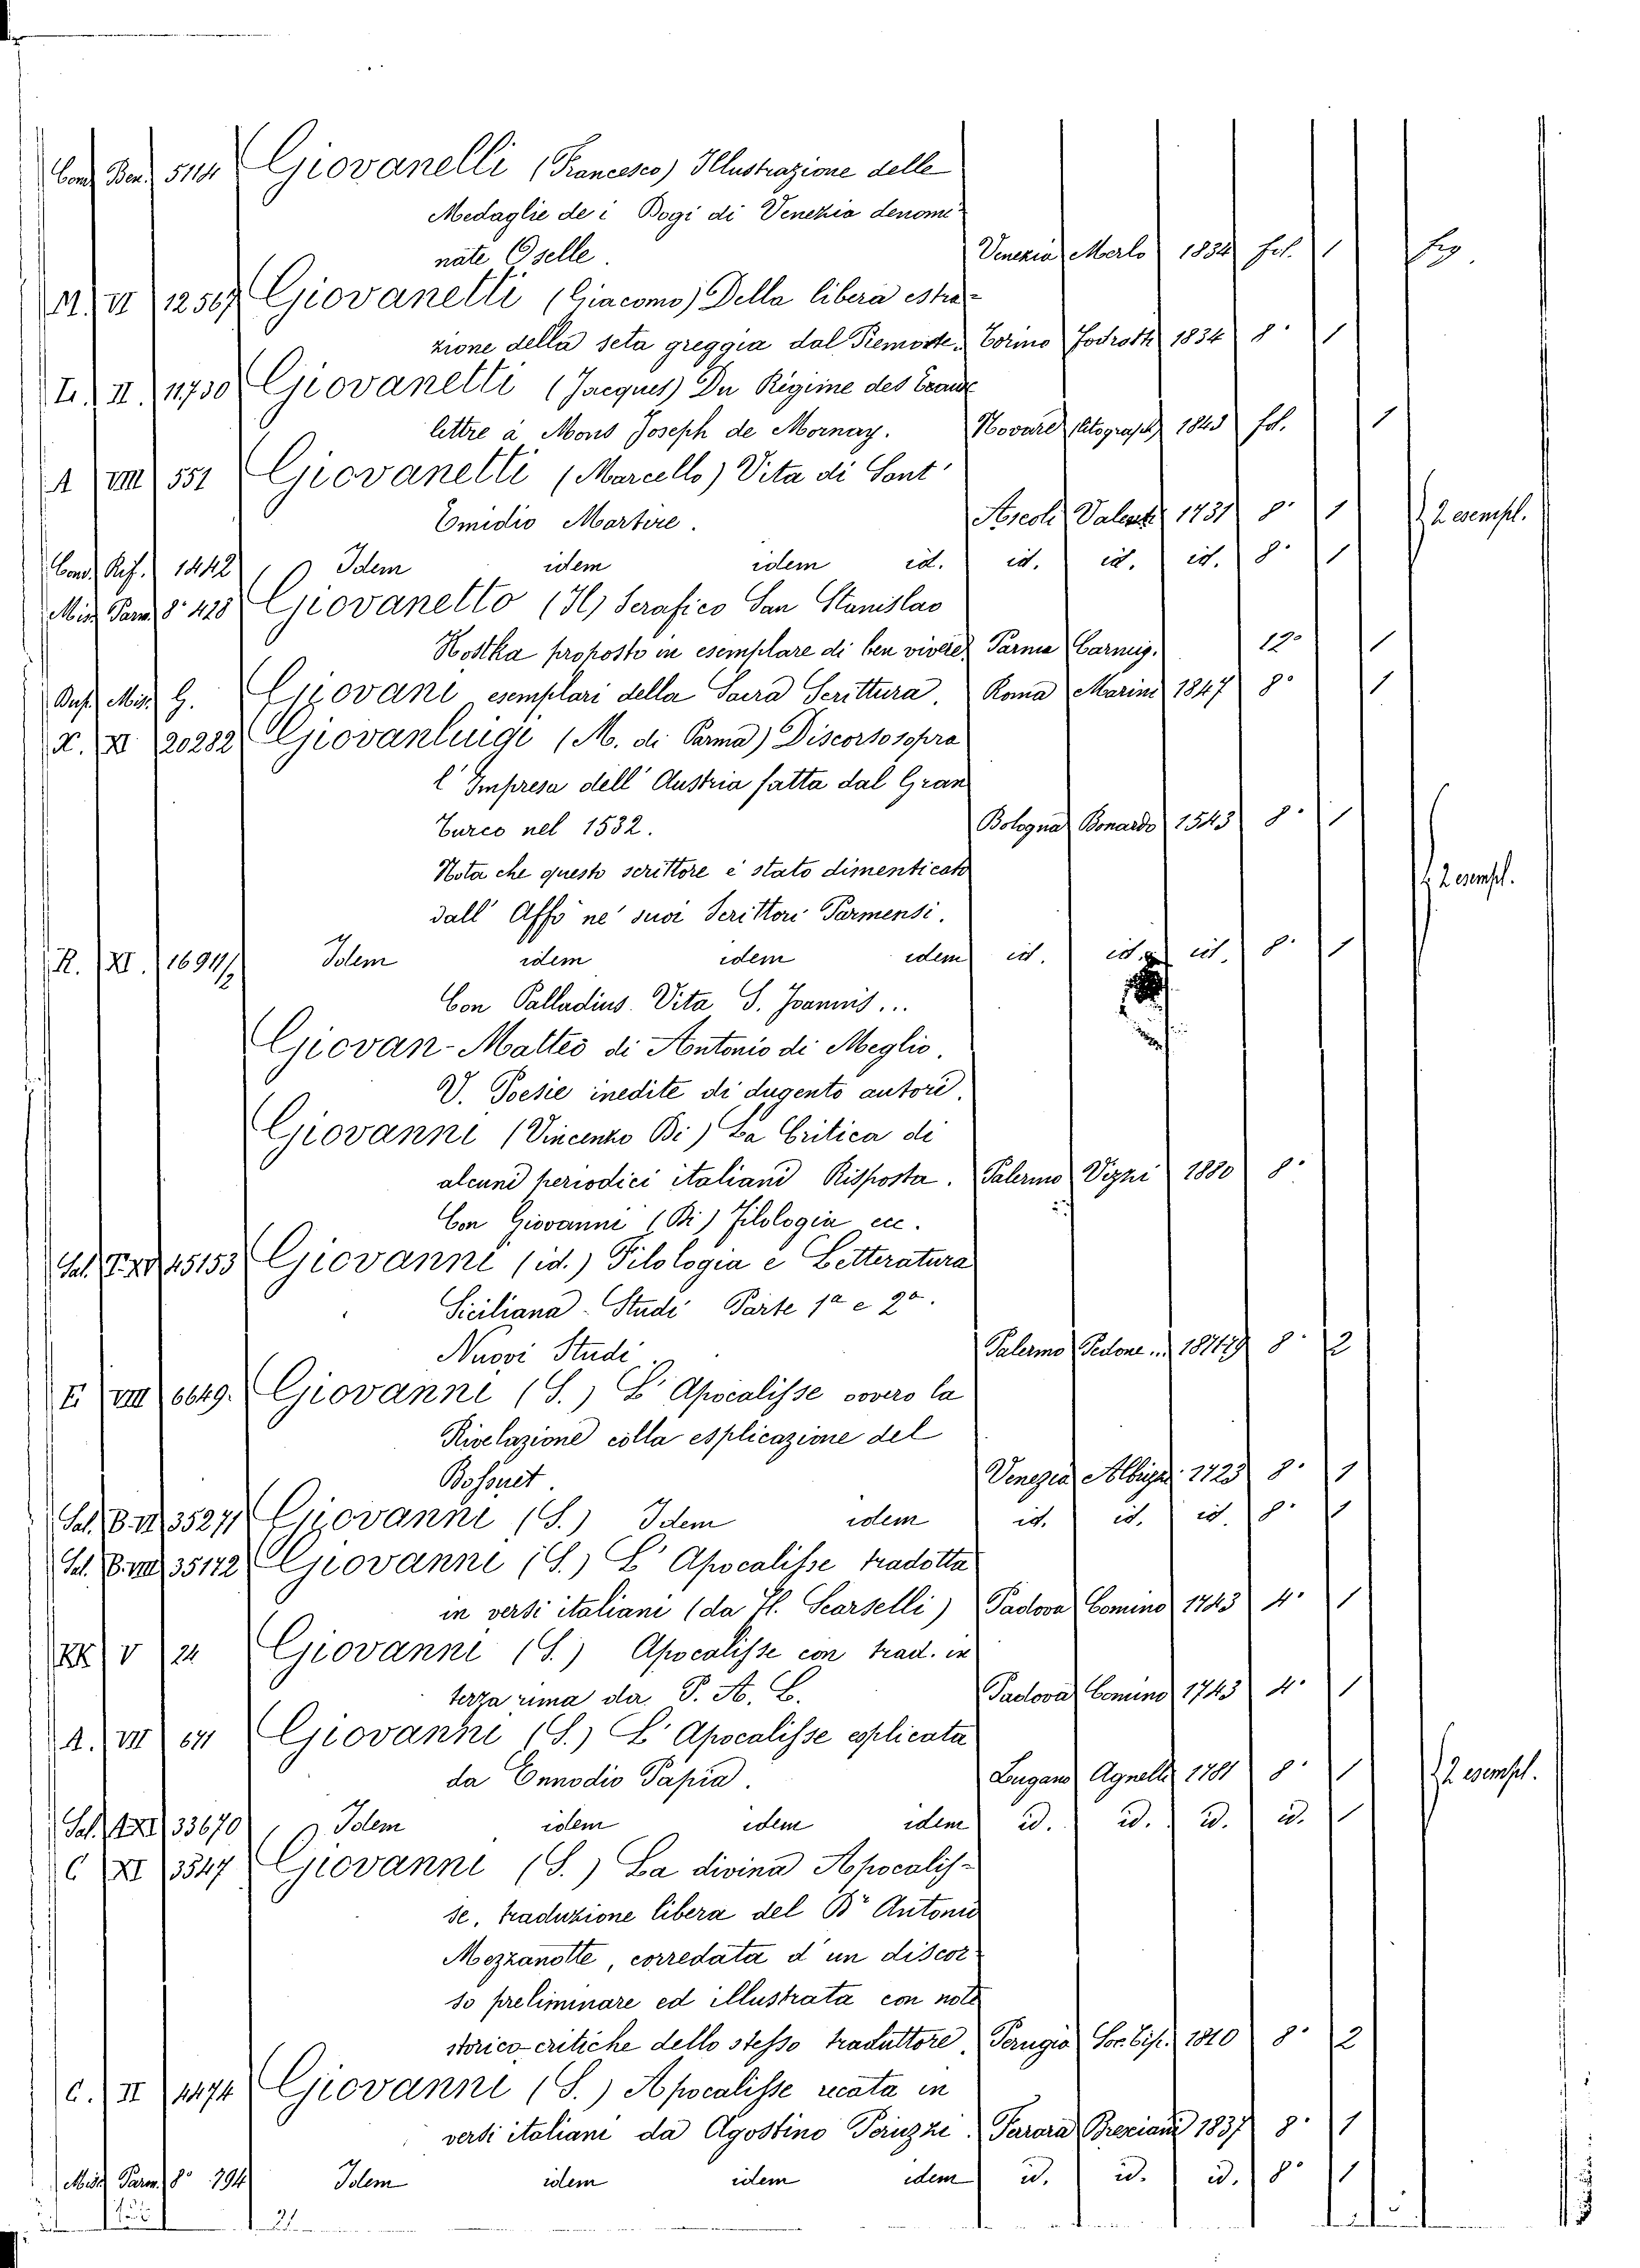 Cond. Ben. 5114 Giovanelli (Francesco) Illustrazione delle
Medaglie de i Dogi di Venezia denomi-
nate Oselle. Venezia Merlo 1834 fol. 1 fig.
M. VI 12567 Giovanelli (Giacomo) Della libera estra-
zione della seta greggia dal Piemonte. Torino Fodratti 1834 8° 1
L. II. 11730 Giovanetti (Jacques) Du Régime des Eaux
lettre à Mons Joseph de Mornay. Novare 1843 fol. 1
A VIII 551 Giovanetti (Marcello) Vita di Sant'
Emidio Martire. Ascoli Valenti 1731 8° 1 2 esempl.
Cond. Ref. 1442 Idem idem idem id. id. id. id. 8° 1
Misc. Parm. 8° 428 Giovanetto (Il) Serafico San Stanislao
Kostka proposto in esemplare di ben vivere. Parma Carmig. 12° 1
Misc. G. Giovani esemplari della Sacra Scrittura. Roma Marini 1847 8° 1
X. XI 20282 Giovanluigi (M. di Parma) Discorso sopra
l'Impresa dell'Austria fatta dal Gran
Turco nel 1532. Bologna Bonardo 1543 8° 1
Nota che questo scrittore è stato dimenticato
dall'Affò ne' suoi Scrittori Parmensi. 2 esempl.
R. XI. 16941/2 Idem idem idem idem id. id. id. 8° 1
Con Palladius. Vita S. Joannis...
Giovan-Matteo di Antonio di Meglio.
V. Poesie inedite di dugento autori.
Giovanni (Vincenzo Di) La Critica di
alcuni periodici italiani Risposta. Palermo Virzi 1880 8°
Con Giovanni (Di) Filologia ecc.
Sal. 45153 Giovanni (id.) Filologia e Letteratura
Siciliana - Studi Parte 1a e 2a.
Nuovi Studi. Palermo Pedone... 1871-79 8° 2
E VIII 6649. Giovanni (S.) L'Apocalisse ovvero la
Rivelazione colla esplicazione del
Bossuet. Venezia Albrizzi 1723 8° 1
Sal. B. VI 35271 Giovanni (S.) Idem idem id. id. id. 8° 1
Sal. B. VIII 35172 Giovanni (S.) L'Apocalisse tradotta
in versi italiani (da Fl. Scarselli) Padova Comino 1743 4° 1
KK V 24 Giovanni (S.) Apocalisse con trad. in
terza rima da P. A. B. Padova Comino 1743 4° 1
A. VII 641 Giovanni (S.) L'Apocalisse esplicata
da Ennodio Papia. Lugano Agnelli 1781 8° 1 2 esempl.
Sal. A XI 33670 Idem idem idem idem id. id. id. id. 1
C XI 3547 Giovanni (S.) La divina Apocalis-
se, traduzione libera del Br Antonio
Mezzanotte, corredata d'un discor-
so preliminare ed illustrata con note
storico-critiche dello stesso traduttore. Perugia Soc. Tip. 1810 8° 2
C. II 4474 Giovanni (S.) Apocalisse recata in
versi italiani da Agostino Peruzzi. Ferrara Bresciani 1837 8° 1
Misc. Parm. 8° 794 Idem idem idem idem id. id. id. 8° 1
21